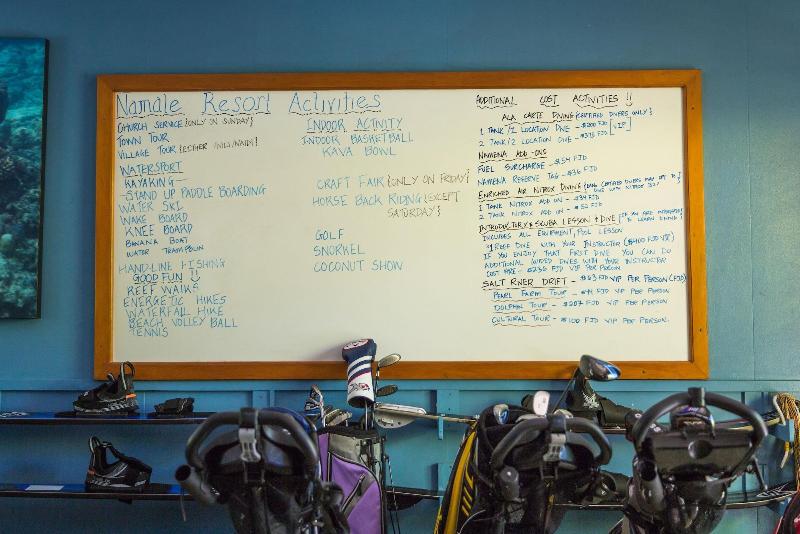 Namale Resort Activities
CHURCH SERVICE {ONLY ON SUNDAY}
TOWN TOUR
VILLAGE TOUR
WATERSPORT
KAYAKING
STAND UP PADDLE BOARDING
WATER SKI
WAKE BOARD
KNEE BOARD
BANANA BOAT
WATER TRAMPOLIN
HANDLINE FISHING
GOOD FUN
REEF WALKS
ENERGETIC HIKES
WATERFALL HIKE
BEACH VOLLEY BALL
TENNIS
INDOOR ACTIVITY
INDOOR BASKETBALL
KAVA BOWL
CRAFT FAIR {ONLY ON FRIDAY}
HORSE BACK RIDING {EXCEPT
SATURDAY}
GOLF
SNORKEL
COCONUT SHOW
ADDITIONAL COST ACTIVITIES !!
ALA CARTE DIVING {CERTIFIED DIVERS ONLY}
1 TANK/1 LOCATION DIVE - $200 FJD [VIP]
2 TANK/2 LOCATION DIVE - $375 FJD
NAMENA ADD-ONS
FUEL SURCHARGE - $54 FJD
NAMENA RESERVE TAG - $36 FJD
ENRICHED AIR NITROX DIVING
1 TANK NITROX ADD ON - $34 FJD
2 TANK NITROX ADD ON - $52 FJD
INTRODUCTORY SCUBA LESSON & DIVE [IF YOU ARE INTERESTED
TO LEARN DIVING]
INCLUDES ALL EQUIPMENT, POOL LESSON
1 REEF DIVE WITH YOUR INSTRUCTOR
IF YOU ENJOY THAT FIRST DIVE YOU CAN DO
ADDITIONAL GUIDED DIVES WITH YOUR INSTRUCTOR
COST PRE - $236 FJD VIP PER PERSON
SALT RIVER DRIFT - $63 FJD VIP PER PERSON (FJD)
PEARL FARM TOUR - FJD VIP PER PERSON
DOLPHIN TOUR - $207 FJD VIP PER PERSON
CULTURAL TOUR - $100 FJD VIP PER PERSON